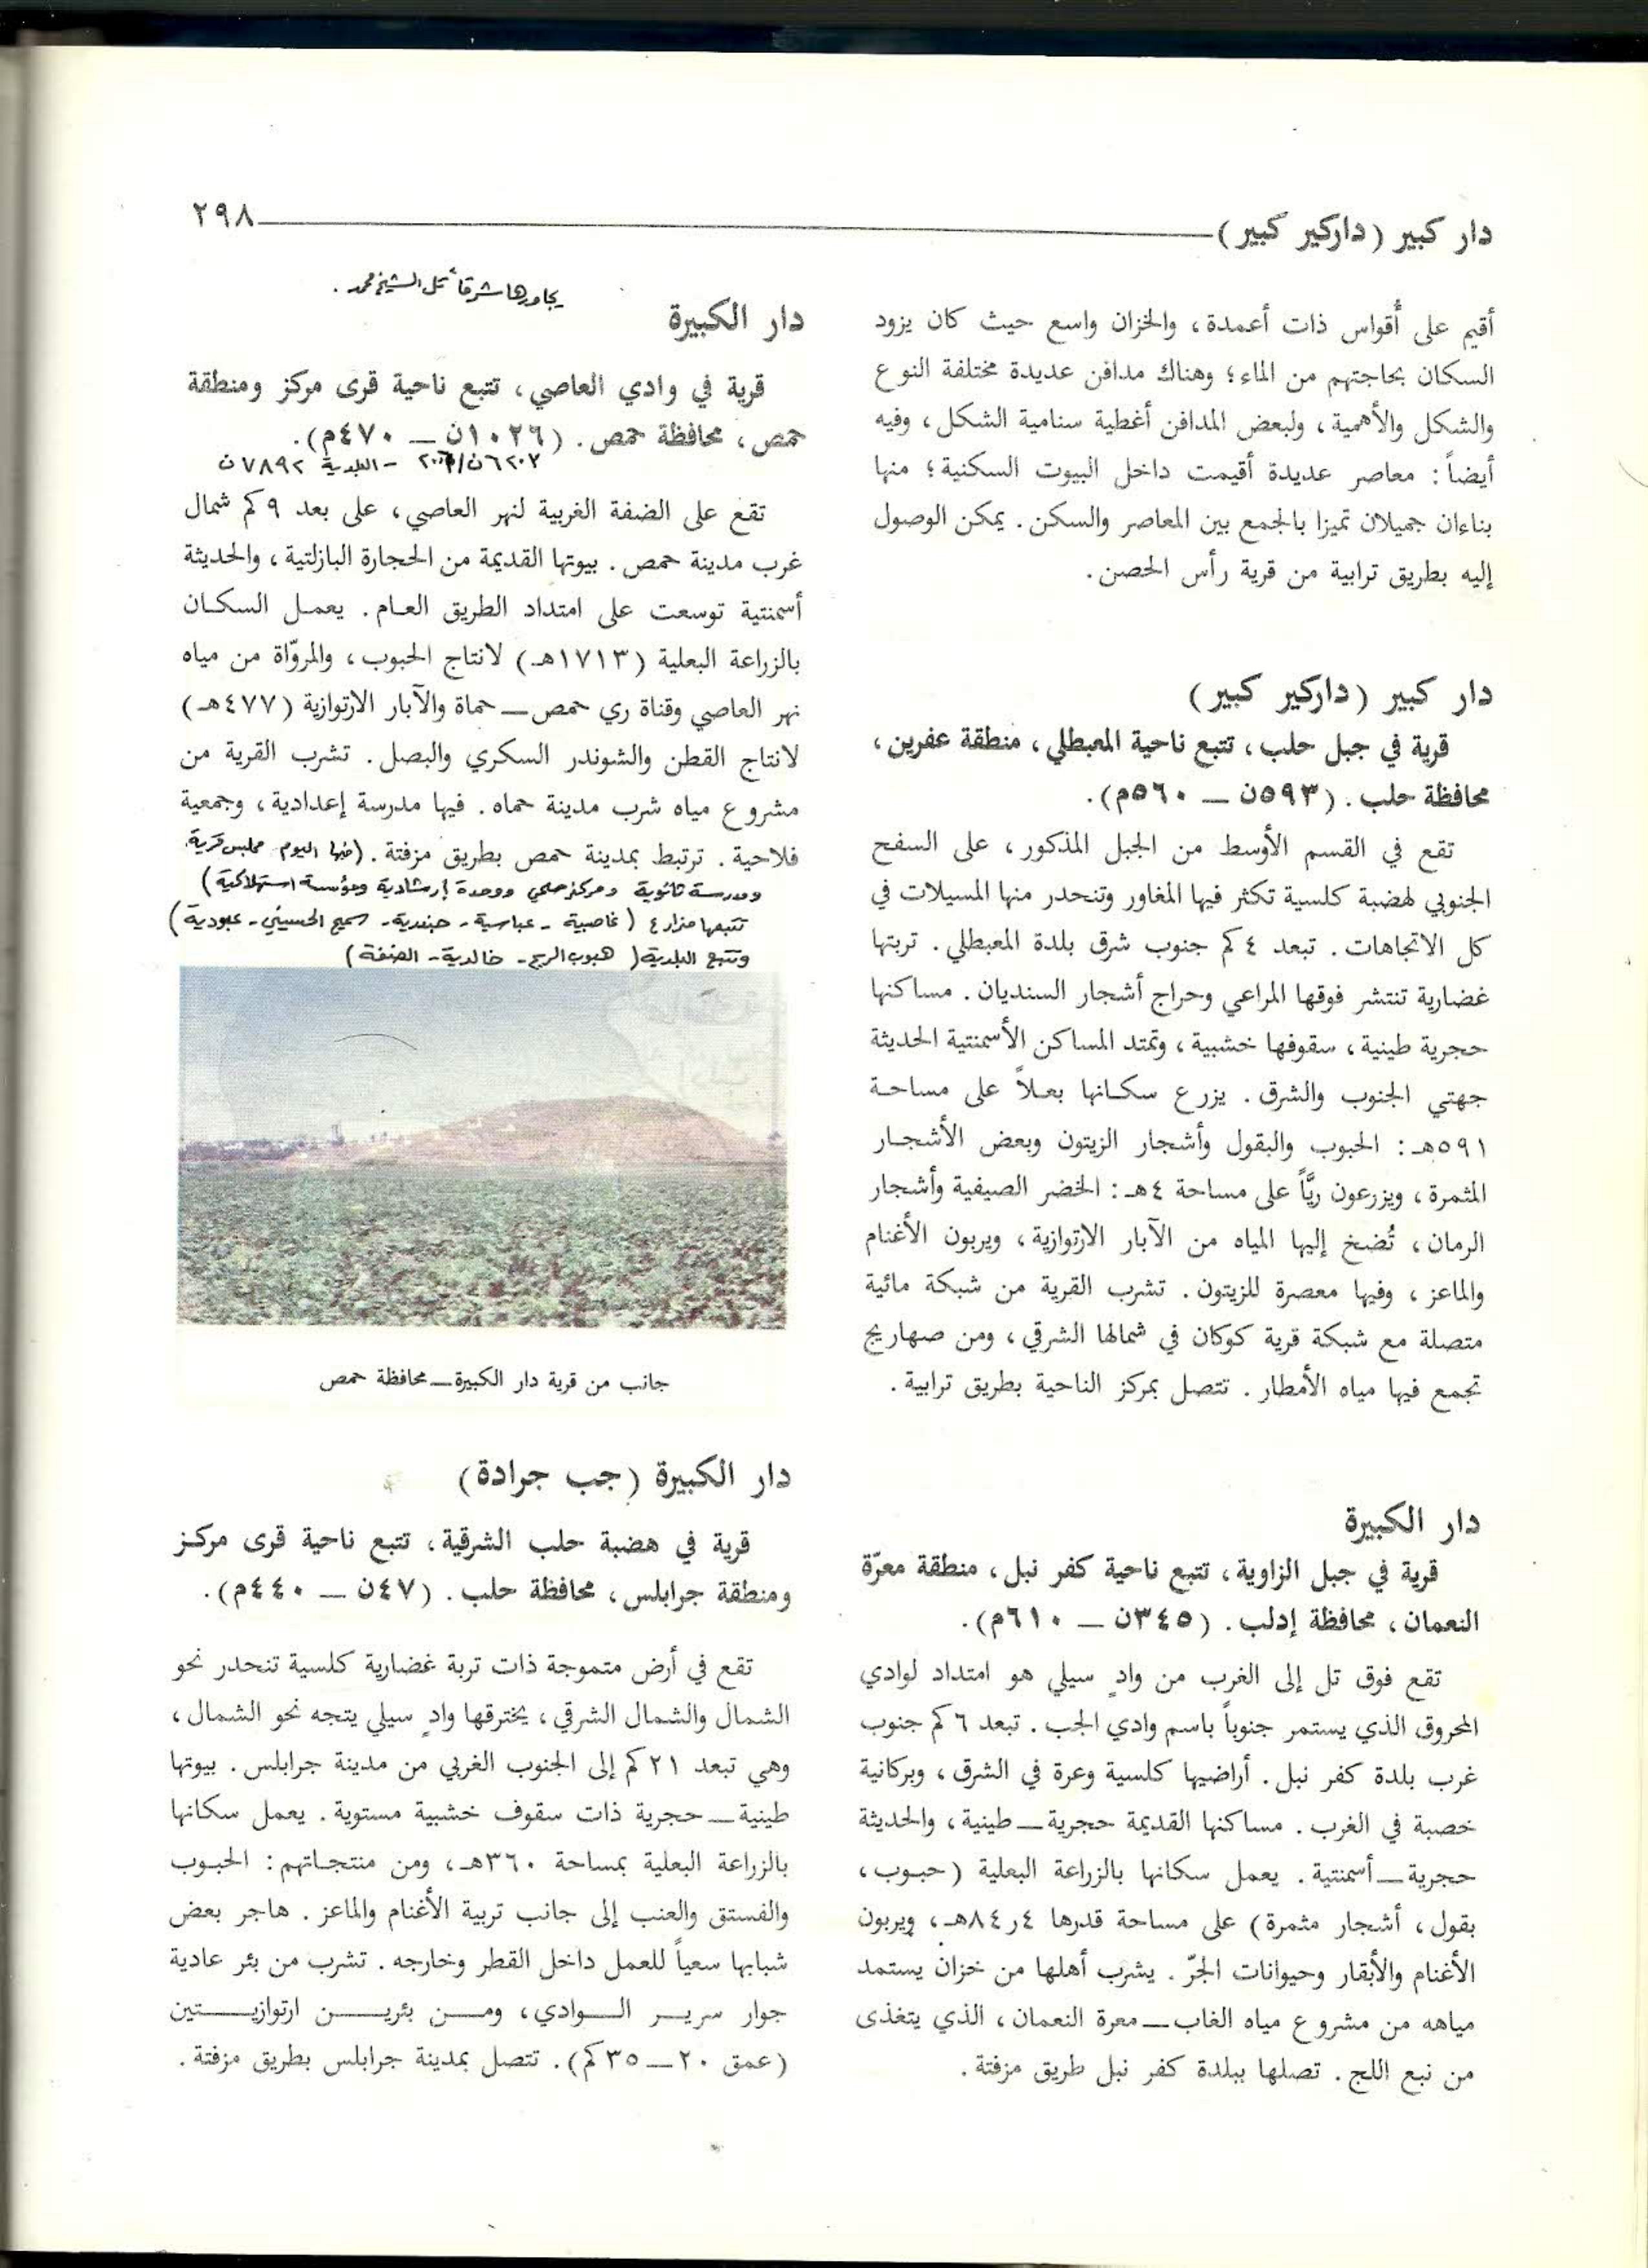 دار كبير (داركير كبير) ٢٩٨
أقيم على أقواس ذات أعمدة، والخزان واسع حيث كان يزود
السكان بحاجتهم من الماء؛ وهناك مدافن عديدة مختلفة النوع
والشكل والأهمية، ولبعض المدافن أغطية سنامية الشكل، وفيه
أيضاً: معاصر عديدة أقيمت داخل البيوت السكنية؛ منها
بناءان جميلان تميزا بالجمع بين المعاصر والسكن. يمكن الوصول
إليه بطريق ترابية من قرية رأس الحصن.
دار كبير (داركير كبير)
قرية في جبل حلب، تتبع ناحية المعبطلي، منطقة عفرين،
محافظة حلب. (٥٩٣ن — ٥٦٠م).
تقع في القسم الأوسط من الجبل المذكور، على السفح
الجنوبي لهضبة كلسية تكثر فيها المغاور وتنحدر منها المسيلات في
كل الاتجاهات. تبعد ٤ كم جنوب شرق بلدة المعبطلي. تربتها
غضارية تنتشر فوقها المراعي وحراج أشجار السنديان. مساكنها
حجرية طينية، سقوفها خشبية، وتمتد المساكن الأسمنتية الحديثة
جهتي الجنوب والشرق. يزرع سكانها بعلاً على مساحة
٥٩١هـ: الحبوب والبقول وأشجار الزيتون وبعض الأشجار
المثمرة، ويزرعون ريّاً على مساحة ٤هـ: الخضر الصيفية وأشجار
الرمان، تُضخ إليها المياه من الآبار الارتوازية، ويربون الأغنام
والماعز، وفيها معصرة للزيتون. تشرب القرية من شبكة مائية
متصلة مع شبكة قرية كوكان في شمالها الشرقي، ومن صهاريج
تجمع فيها مياه الأمطار. تتصل بمركز الناحية بطريق ترابية.
دار الكبيرة
قرية في جبل الزاوية، تتبع ناحية كفر نبل، منطقة معرّة
النعمان، محافظة إدلب. (٣٤٥ن — ٦١٠م).
تقع فوق تل إلى الغرب من وادٍ سيلي هو امتداد لوادي
المحروق الذي يستمر جنوباً باسم وادي الجب. تبعد ٦ كم جنوب
غرب بلدة كفر نبل. أراضيها كلسية وعرة في الشرق، وبركانية
خصبة في الغرب. مساكنها القديمة حجرية — طينية، والحديثة
حجرية — أسمنتية. يعمل سكانها بالزراعة البعلية (حبوب،
بقول، أشجار مثمرة) على مساحة قدرها ٨٤ر٤هـ، ويربون
الأغنام والأبقار وحيوانات الجرّ. يشرب أهلها من خزان يستمد
مياهه من مشروع مياه الغاب — معرة النعمان، الذي يتغذى
من نبع اللج. تصلها ببلدة كفر نبل طريق مزفتة.
يجاورها شرقاً تل الشيخ محمد.
دار الكبيرة
قرية في وادي العاصي، تتبع ناحية قرى مركز ومنطقة
حمص، محافظة حمص. (١٠٢٦ن — ٤٧٠م).
- البلدية ٧٨٩٢ن
تقع على الضفة الغربية لنهر العاصي، على بعد ٩ كم شمال
غرب مدينة حمص. بيوتها القديمة من الحجارة البازلتية، والحديثة
أسمنتية توسعت على امتداد الطريق العام. يعمل السكان
بالزراعة البعلية (١٧١٣هـ) لانتاج الحبوب، والمروّاة من مياه
نهر العاصي وقناة ري حمص — حماة والآبار الارتوازية (٤٧٧هـ)
لانتاج القطن والشوندر السكري والبصل. تشرب القرية من
مشروع مياه شرب مدينة حماه. فيها مدرسة إعدادية، وجمعية
فلاحية. ترتبط بمدينة حمص بطريق مزفتة. (فيها اليوم مجلس قرية
ومدرسة ثانوية ومركز صحي ووحدة إرشادية ومؤسسة استهلاكية)
تتبعها مزارع (غاصبية - عباسية - حيدرية - سميح الحسيني - عبودية)
وتتبع البلدية (هبوب الريح - خالدية - الضفة)
جانب من قرية دار الكبيرة — محافظة حمص
دار الكبيرة (جب جرادة)
قرية في هضبة حلب الشرقية، تتبع ناحية قرى مركز
ومنطقة جرابلس، محافظة حلب. (٤٧ن — ٤٤٠م).
تقع في أرض متموجة ذات تربة غضارية كلسية تنحدر نحو
الشمال والشمال الشرقي، يخترقها وادٍ سيلي يتجه نحو الشمال،
وهي تبعد ٢١ كم إلى الجنوب الغربي من مدينة جرابلس. بيوتها
طينية — حجرية ذات سقوف خشبية مستوية. يعمل سكانها
بالزراعة البعلية بمساحة ٣٦٠هـ، ومن منتجاتهم: الحبوب
والفستق والعنب إلى جانب تربية الأغنام والماعز. هاجر بعض
شبابها سعياً للعمل داخل القطر وخارجه. تشرب من بئر عادية
جوار سرير الوادي، ومن بئرين ارتوازيتين
(عمق ٢٠ — ٣٥كم). تتصل بمدينة جرابلس بطريق مزفتة.